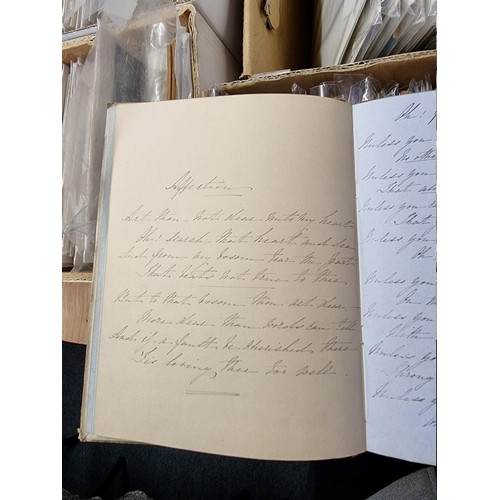 Affection
Art thou not dear unto my heart
Oh! search that heart and see
And from my bosom tear the part
That beats not true to thee
But to that bosom thou art dear
More dear than words can tell
And if a fault be cherished there
'Tis loving thee too well.
Oh!
Unless you
No othe
Unless you
That
Unless you c
That
Unless you
Oh
Unless you
On th
Unless you
With
Unless you
Strong
Unless y